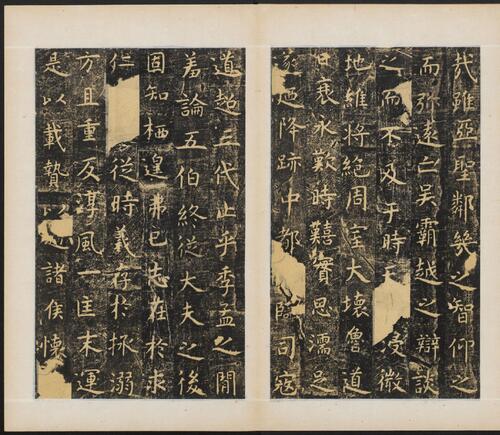 哉雖亞聖鄰幾之智仰之
而弥遠亡吳霸越之辯談
之而不及于時天浸微
地維將絕周室大壞魯道
日衰永歎時囏實思濡足
遂迺降跡中都臨司寇
道超三代止乎季孟之間
羞論五伯終從大夫之後
固知栖遑弗已志在於求
仁從時義存於拯溺
方且重反淳風一匡末運
是以載贄以諸侯懷